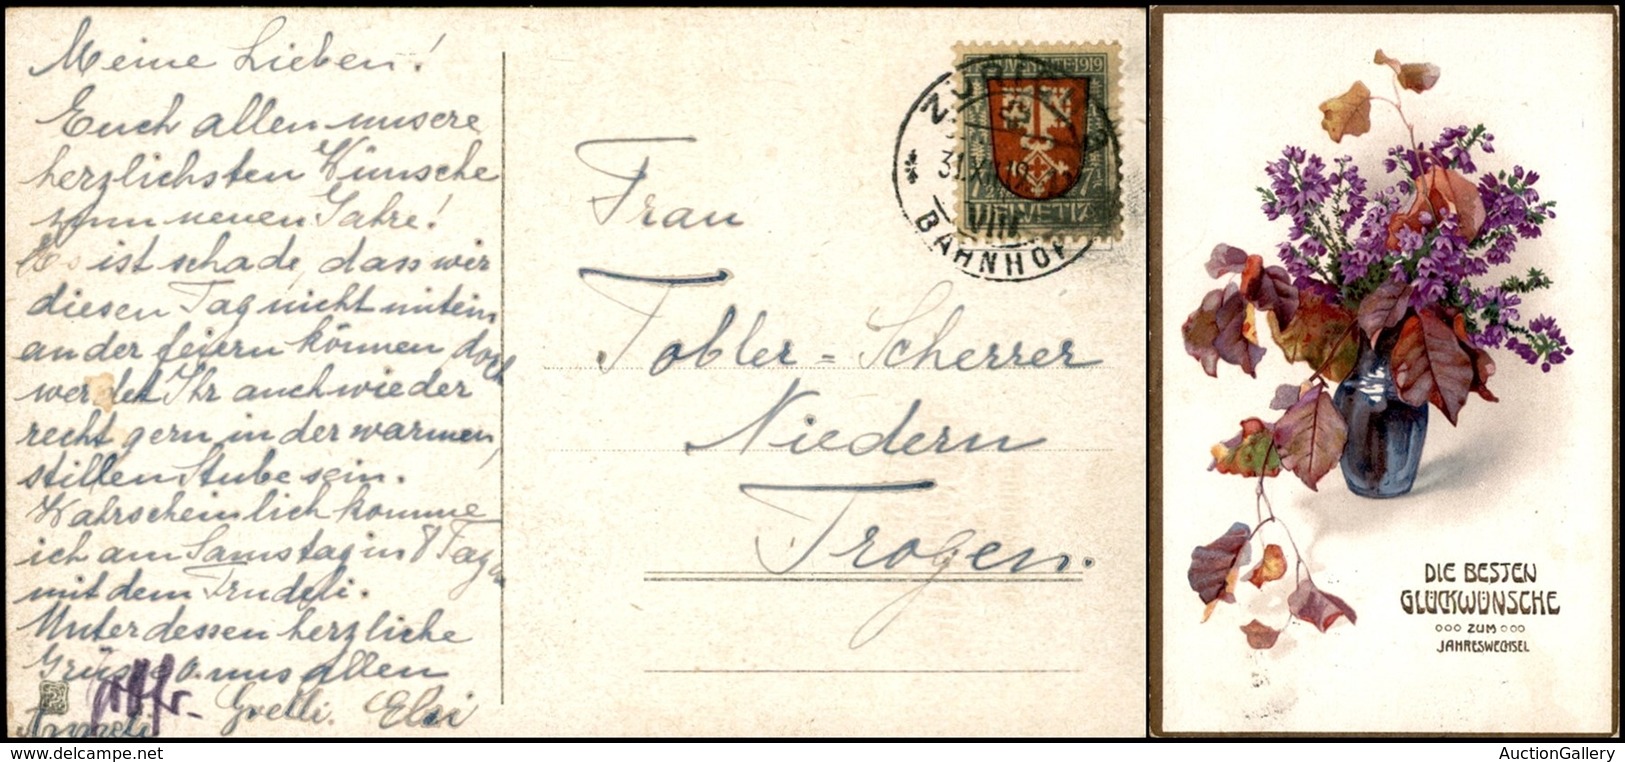 Meine Lieben!
Euch allen unsere
herzlichsten Wünsche
zum neuen Jahre!
Es ist schade, dass wir
diesen Tag nicht mitein
ander feiern können doch
werdet Ihr auch wieder
recht gern in der warmen,
stillen Stube sein.
Wahrscheinlich komme
ich am Samstag in 8 Tagen
mit dem Trudeli.
Unterdessen herzliche
Grüsse a. uns allen
Gretli. Elsi
JUVENTUTE 1919
HELVETIA
ZÜRICH
31.XII.19
VIII
BAHNHOF
Frau
Tobler=Scherrer
Niedern
Trogen.
DIE BESTEN
GLÜCKWÜNSCHE
ZUM
JAHRESWECHSEL
www.delcampe.net
AuctionGallery